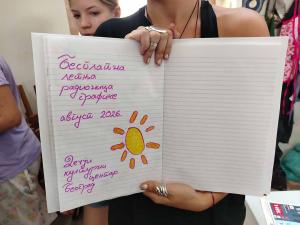 Бесплатна
летња
радионица
графике
август 2026.
Дечји
културни
центар
Београд